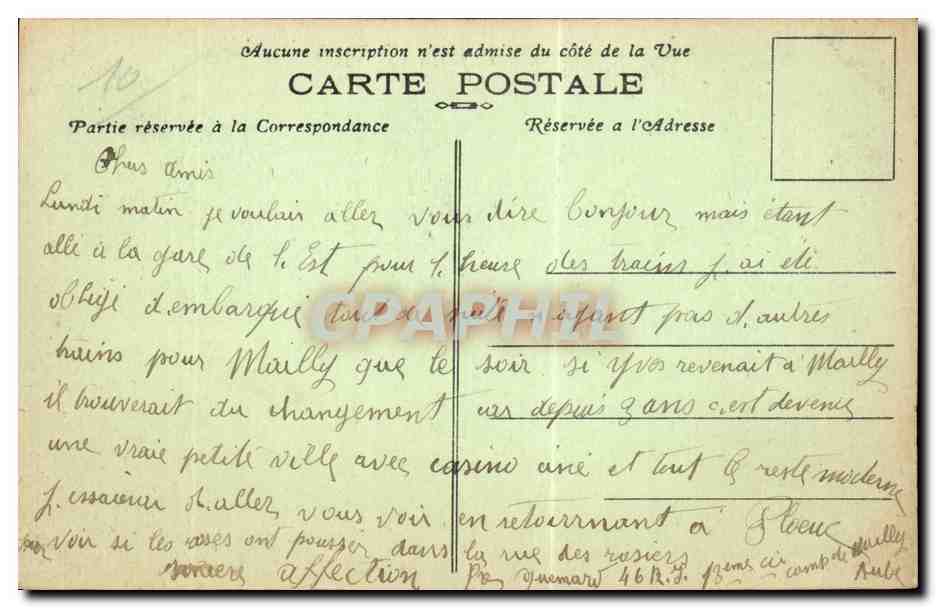 Aucune inscription n'est admise du côté de la Vue
CARTE POSTALE
Partie réservée à la Correspondance
Réservée a l'Adresse
10
Chers amis
Lundi matin je voulais aller vous dire bonjour mais étant
allé à la gare de l'Est pour l'heure des trains j'ai été
obligé d'embarqué tout de suite n'ayant pas d'autres
trains pour Mailly que le soir si Yves revenait à Mailly
il trouverait du changement car depuis 3 ans c'est devenu
une vraie petite ville avec casino ciné et tout le reste moderne
j'essaierai d'aller vous voir en retournant à
voir si les roses ont pousser dans la rue des rosiers
sincère affection
46 R.I. 13ème cie camp de Mailly
Aube
CPAPHIL